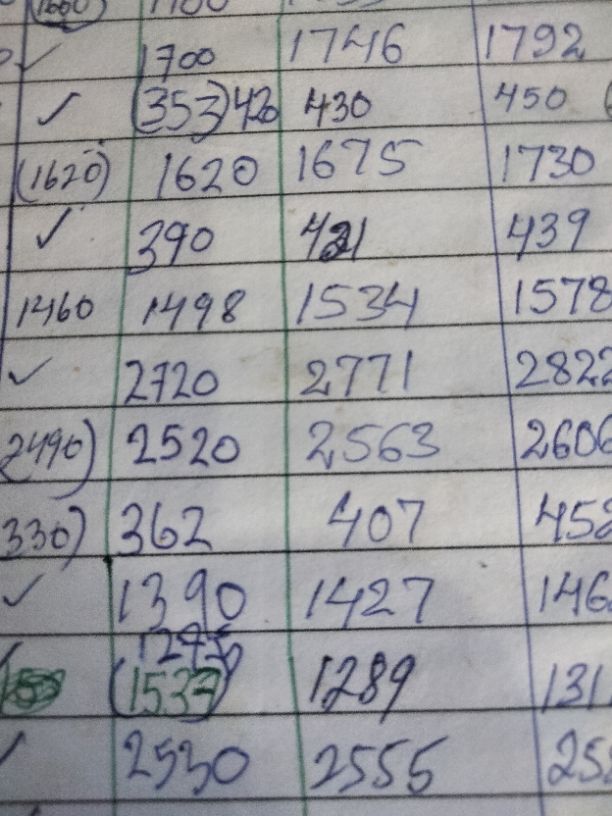 (1660)
✓ 1700 1746 1792
✓ (353) 420 430 450
(1620) 1620 1675 1730
✓ 390 421 439
1460 1498 1534 1578
✓ 2720 2771 2822
2490) 2520 2563 2606
330) 362 407 452
✓ 1390 1427 146
(1537) 1289 131
✓ 2530 2555 25